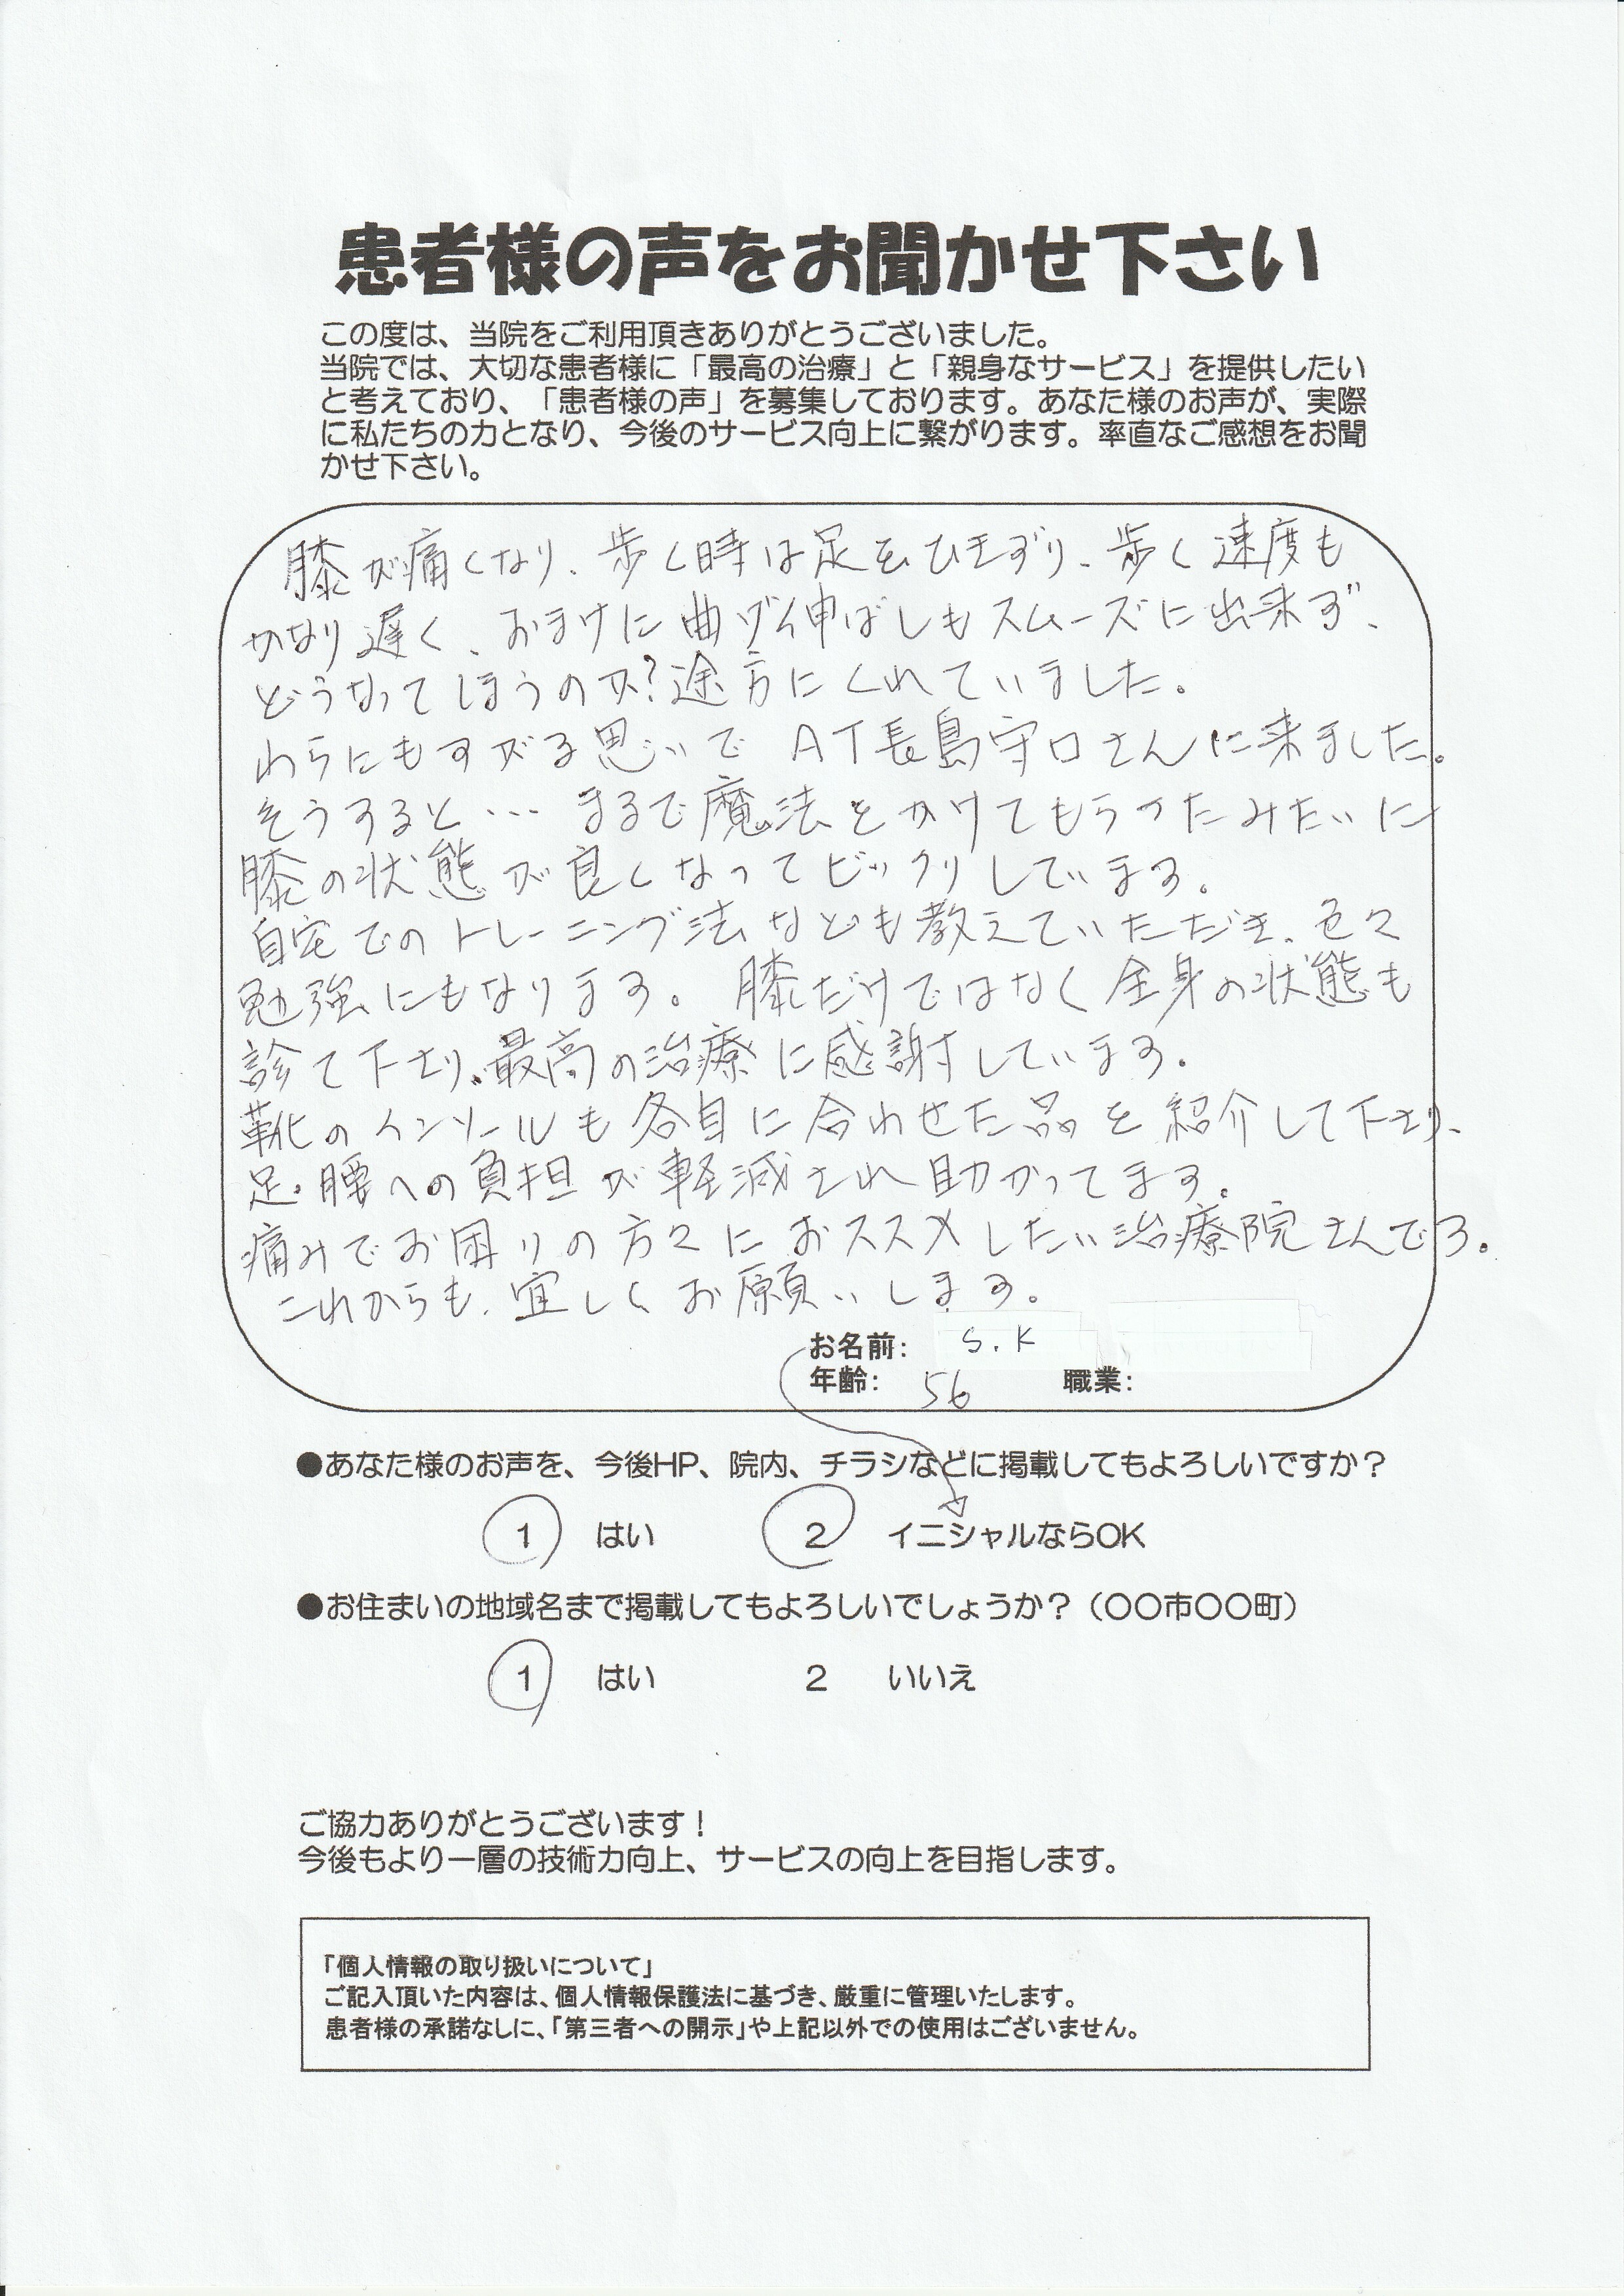 患者様の声をお聞かせ下さい
この度は、当院をご利用頂きありがとうございました。
当院では、大切な患者様に「最高の治療」と「親身なサービス」を提供したい
と考えており、「患者様の声」を募集しております。あなた様のお声が、実際
に私たちの力となり、今後のサービス向上に繋がります。率直なご感想をお聞
かせ下さい。
膝が痛くなり、歩く時は足をひきずり、歩く速度も
かなり遅く、おまけに曲げ伸ばしもスムーズに出来ず、
どうなってしまうのか?途方にくれていました。
わらにもすがる思いでAT長島守口さんに来ました。
そうすると…まるで魔法をかけてもらったみたいに
膝の状態が良くなってビックリしています。
自宅でのトレーニング法なども教えていただき、色々
勉強にもなります。膝だけではなく全身の状態も
診て下さり、最高の治療に感謝しています。
靴のインソールも各自に合わせた品を紹介して下さり、
足・腰への負担が軽減され助かってます。
痛みでお困りの方々におススメしたい治療院さんです。
これからも、宜しくお願いします。
お名前: S.K
年齢: 56 職業:
●あなた様のお声を、今後HP、院内、チラシなどに掲載してもよろしいですか?
1 はい 2 イニシャルならOK
●お住まいの地域名まで掲載してもよろしいでしょうか?(〇〇市〇〇町)
1 はい 2 いいえ
ご協力ありがとうございます!
今後もより一層の技術力向上、サービスの向上を目指します。
「個人情報の取り扱いについて」
ご記入頂いた内容は、個人情報保護法に基づき、厳重に管理いたします。
患者様の承諾なしに、「第三者への開示」や上記以外での使用はございません。